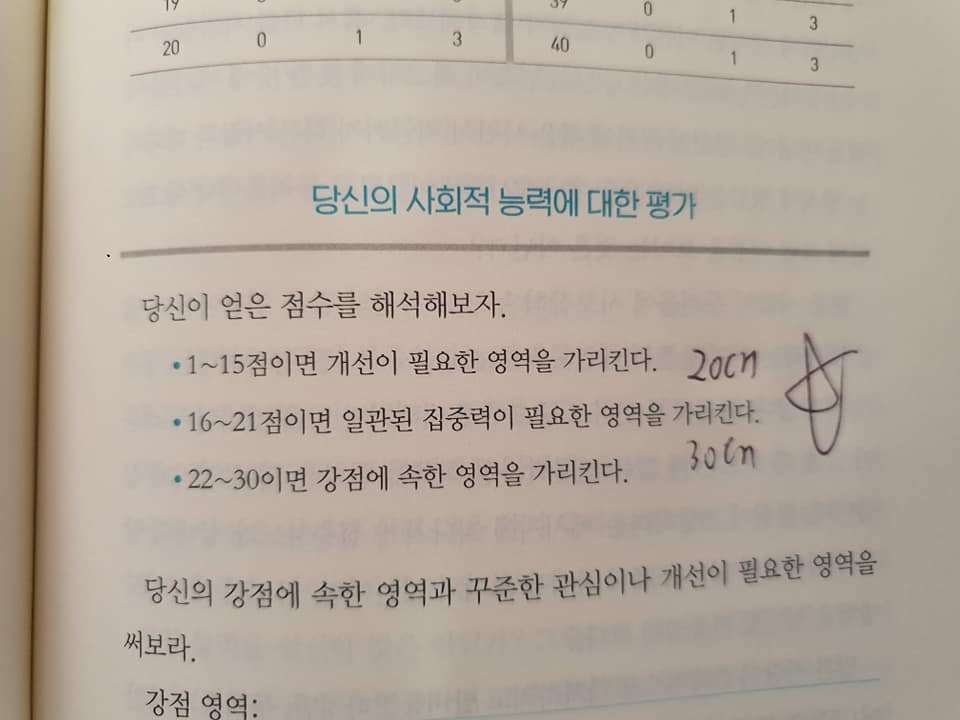 19
39 0 1 3
20 0 1 3 40 0 1 3
당신의 사회적 능력에 대한 평가
당신이 얻은 점수를 해석해보자.
•1~15점이면 개선이 필요한 영역을 가리킨다. 20cm
•16~21점이면 일관된 집중력이 필요한 영역을 가리킨다.
30cm
•22~30이면 강점에 속한 영역을 가리킨다.
당신의 강점에 속한 영역과 꾸준한 관심이나 개선이 필요한 영역을
써보라.
강점 영역: